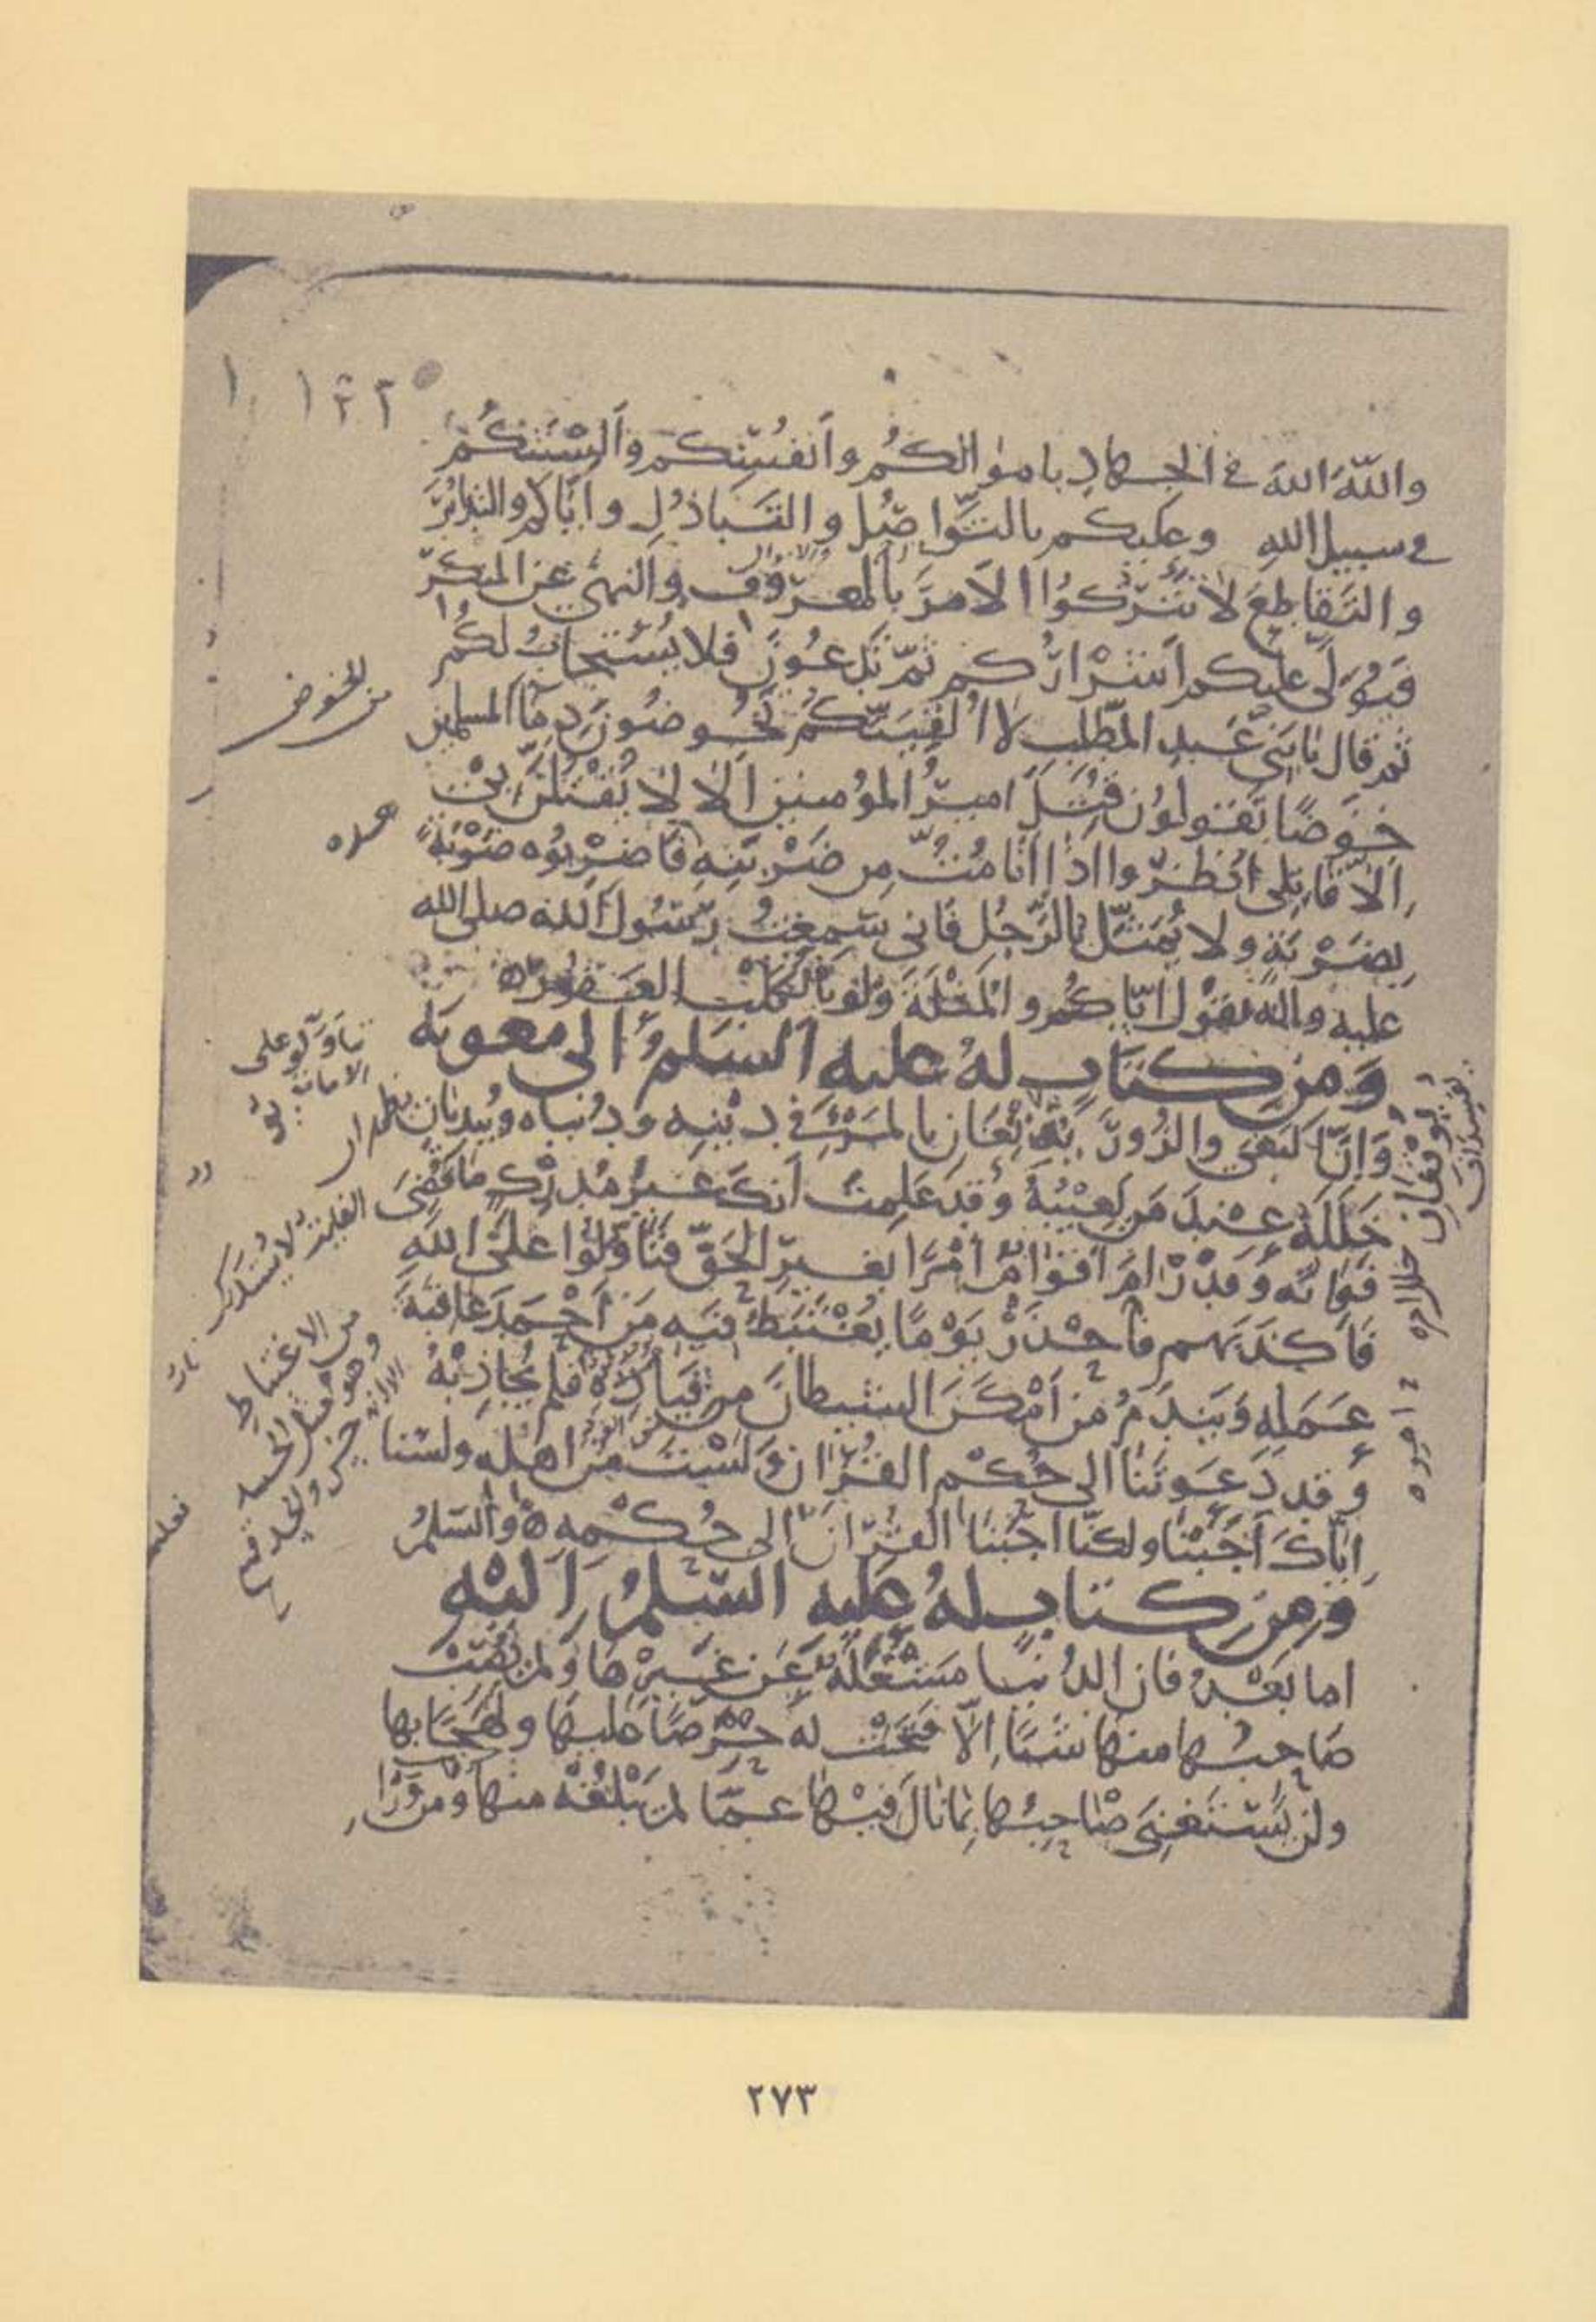 والله الله في الجهاد باموالكم وانفسكم والسنتكم
في سبيل الله وعليكم بالتواصل والتباذل واياكم والتدابر
والتقاطع لا تتركوا الامر بالمعروف والنهي عن المنكر
فيولى عليكم اشراركم ثم تدعون فلا يستجاب لكم
ثم قال يا بني عبد المطلب لا الفينكم تخوضون دما المسلمين
خوضا تقولون قتل امير المؤمنين الا لا لا يقتلن بي
الا قاتلي انظروا اذا انا مت من ضربته فاضربوه ضربة
بضربة ولا يمثل بالرجل فاني سمعت رسول الله صلى الله
عليه واله يقول اياكم والمثلة ولو بالكلب العقور
ومن كتاب له عليه السلم الى معوية
وان البغي والزور يذيعان بالمرء في دينه ودنياه ويبديان
خلله عند من يعيبه وقد علمت انك غير مدرك ما قضي
فواته وقد رام اقوام امرا بغير الحق فتاولوا على الله
فاكذبهم فاحذر يوما يغتبط فيه من احمد عاقبة
عمله ويندم من امكن الشيطان من قياده فلم يجاذبه
وقد دعوتنا الى حكم القران ولست من اهله ولسنا
اياك اجبنا ولكنا اجبنا القران الى حكمه والسلم
ومن كتاب له عليه السلم اليه
اما بعد فان الدنيا مشغلة عن غيرها ولم يصب
صاحبها منها شيا الا فتحت له حرصا عليها ولهجا بها
ولن يستغني صاحبها بما نال فيها عما لم يبلغه منها ومن ورا
من الخوض
من الاغتباط
٢٧٣